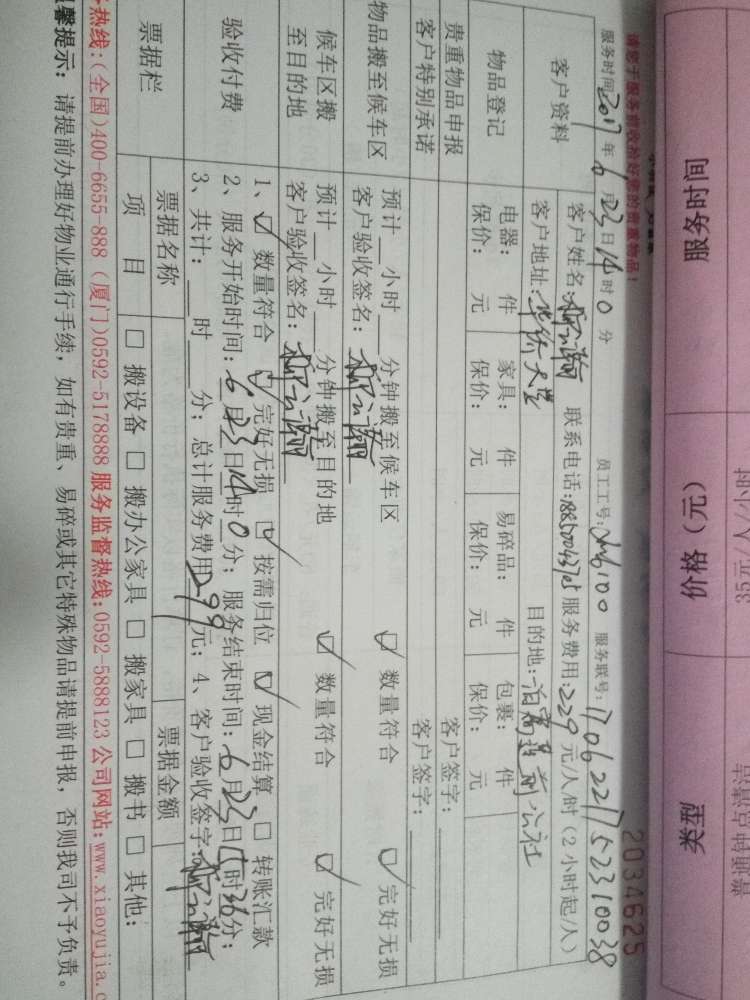 服务时间
价格（元）
类型
35元/人/小时
普通钟点清洁
请您于服务前收拾好您的贵重物品！
2034625
服务时间2017年6月23日14时0分 员工工号: 服务联号:1706221752310038
客户资料
客户姓名: 联系电话: 服务费用:229元/人/时（2小时起/人）
客户地址: 目的地:
物品登记
电器： 件 家具： 件 易碎品： 件 包裹： 件
保价： 元 保价： 元 保价： 元 保价： 元
贵重物品申报 客户签字：
客户特别承诺 客户签字：
物品搬至候车区
预计 小时 分钟搬至候车区 ☑ 数量符合 ☑ 完好无损
客户验收签名：
候车区搬
至目的地
预计 小时 分钟搬至目的地 ☑ 数量符合 ☑ 完好无损
客户验收签名：
验收付费
1、☑ 数量符合 ☑ 完好无损 ☑ 按需归位 ☑ 现金结算 □ 转账汇款
2、服务开始时间：6月23日14时0分；服务结束时间：6月23日15时36分；
3、共计： 时 分；总计服务费用299元；4、客户验收签字：
票据栏
票据名称 票据金额
项 目 □ 搬设备 □ 搬办公家具 □ 搬家具 □ 搬书 □ 其他：
务热线：(全国)400-6655-888 (厦门)0592-5178888 服务监督热线:0592-5888123 公司网站:www.xiaoyujia.c
温馨提示：请提前办理好物业通行手续，如有贵重、易碎或其它特殊物品请提前申报，否则我司不予负责。